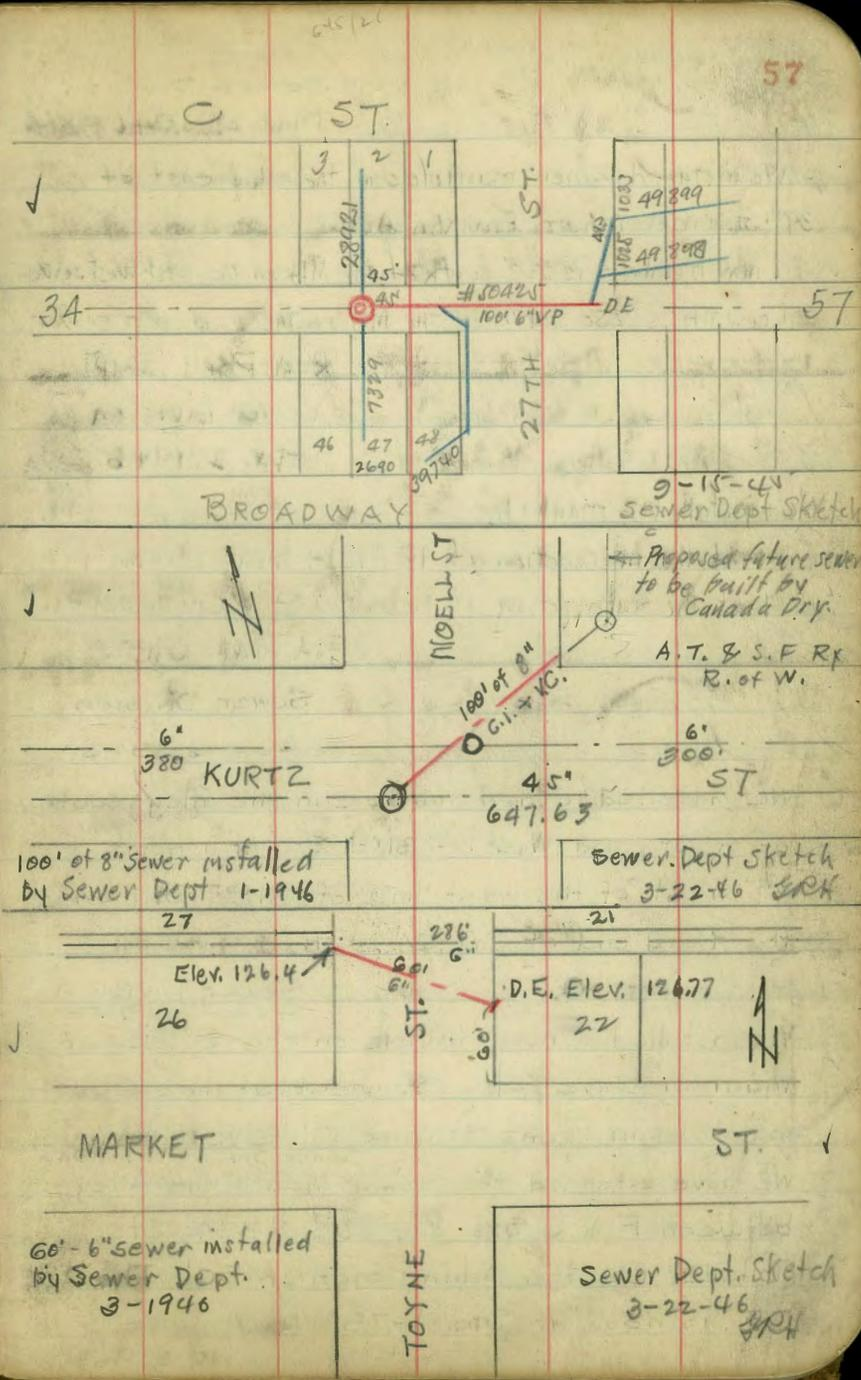 57
C ST.
3 2 1
28921
45'
45'
ST.
1033 49899
1025 49898
#50425
100' 6" VP
D.E
34
57
7329
46 47 48
2690
39740
27TH
9-15-45
BROADWAY
Sewer Dept Sketch
NOELL ST
Proposed future sewer
to be built by
Canada Dry.
A.T. & S.F Ry
R. of W.
100' of 8"
C.I. & V.C.
6"
380
6"
300'
KURTZ ST
45"
647.63
100' of 8" Sewer installed
by Sewer Dept 1-1946
Sewer. Dept Sketch
3-22-46 GRH
27
286'
6"
21
Elev. 126.4
60'
6"
D.E. Elev. 126.77
26
ST.
60'
22
N
MARKET ST.
60'-6" sewer installed
by Sewer Dept.
3-1946
TOYNE
Sewer Dept. Sketch
3-22-46
GRH